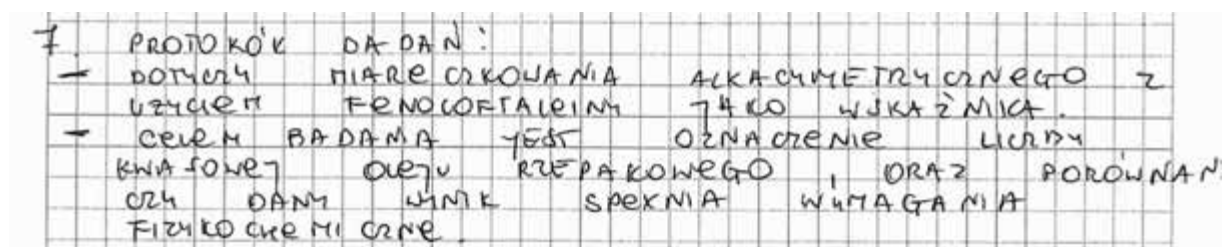 7. PROTOKÓŁ BADAŃ:
- DOTYCZY MIARECZKOWANIA ALKACYMETRYCZNEGO Z
UŻYCIEM FENOLOFTALEINY JAKO WSKAŹNIKA.
- CELEM BADANIA JEST OZNACZENIE LICZBY
KWASOWEJ OLEJU RZEPAKOWEGO, ORAZ PORÓWNANI
CZY DANY WYNIK SPEŁNIA WYMAGANIA
FIZYKOCHEMICZNE.